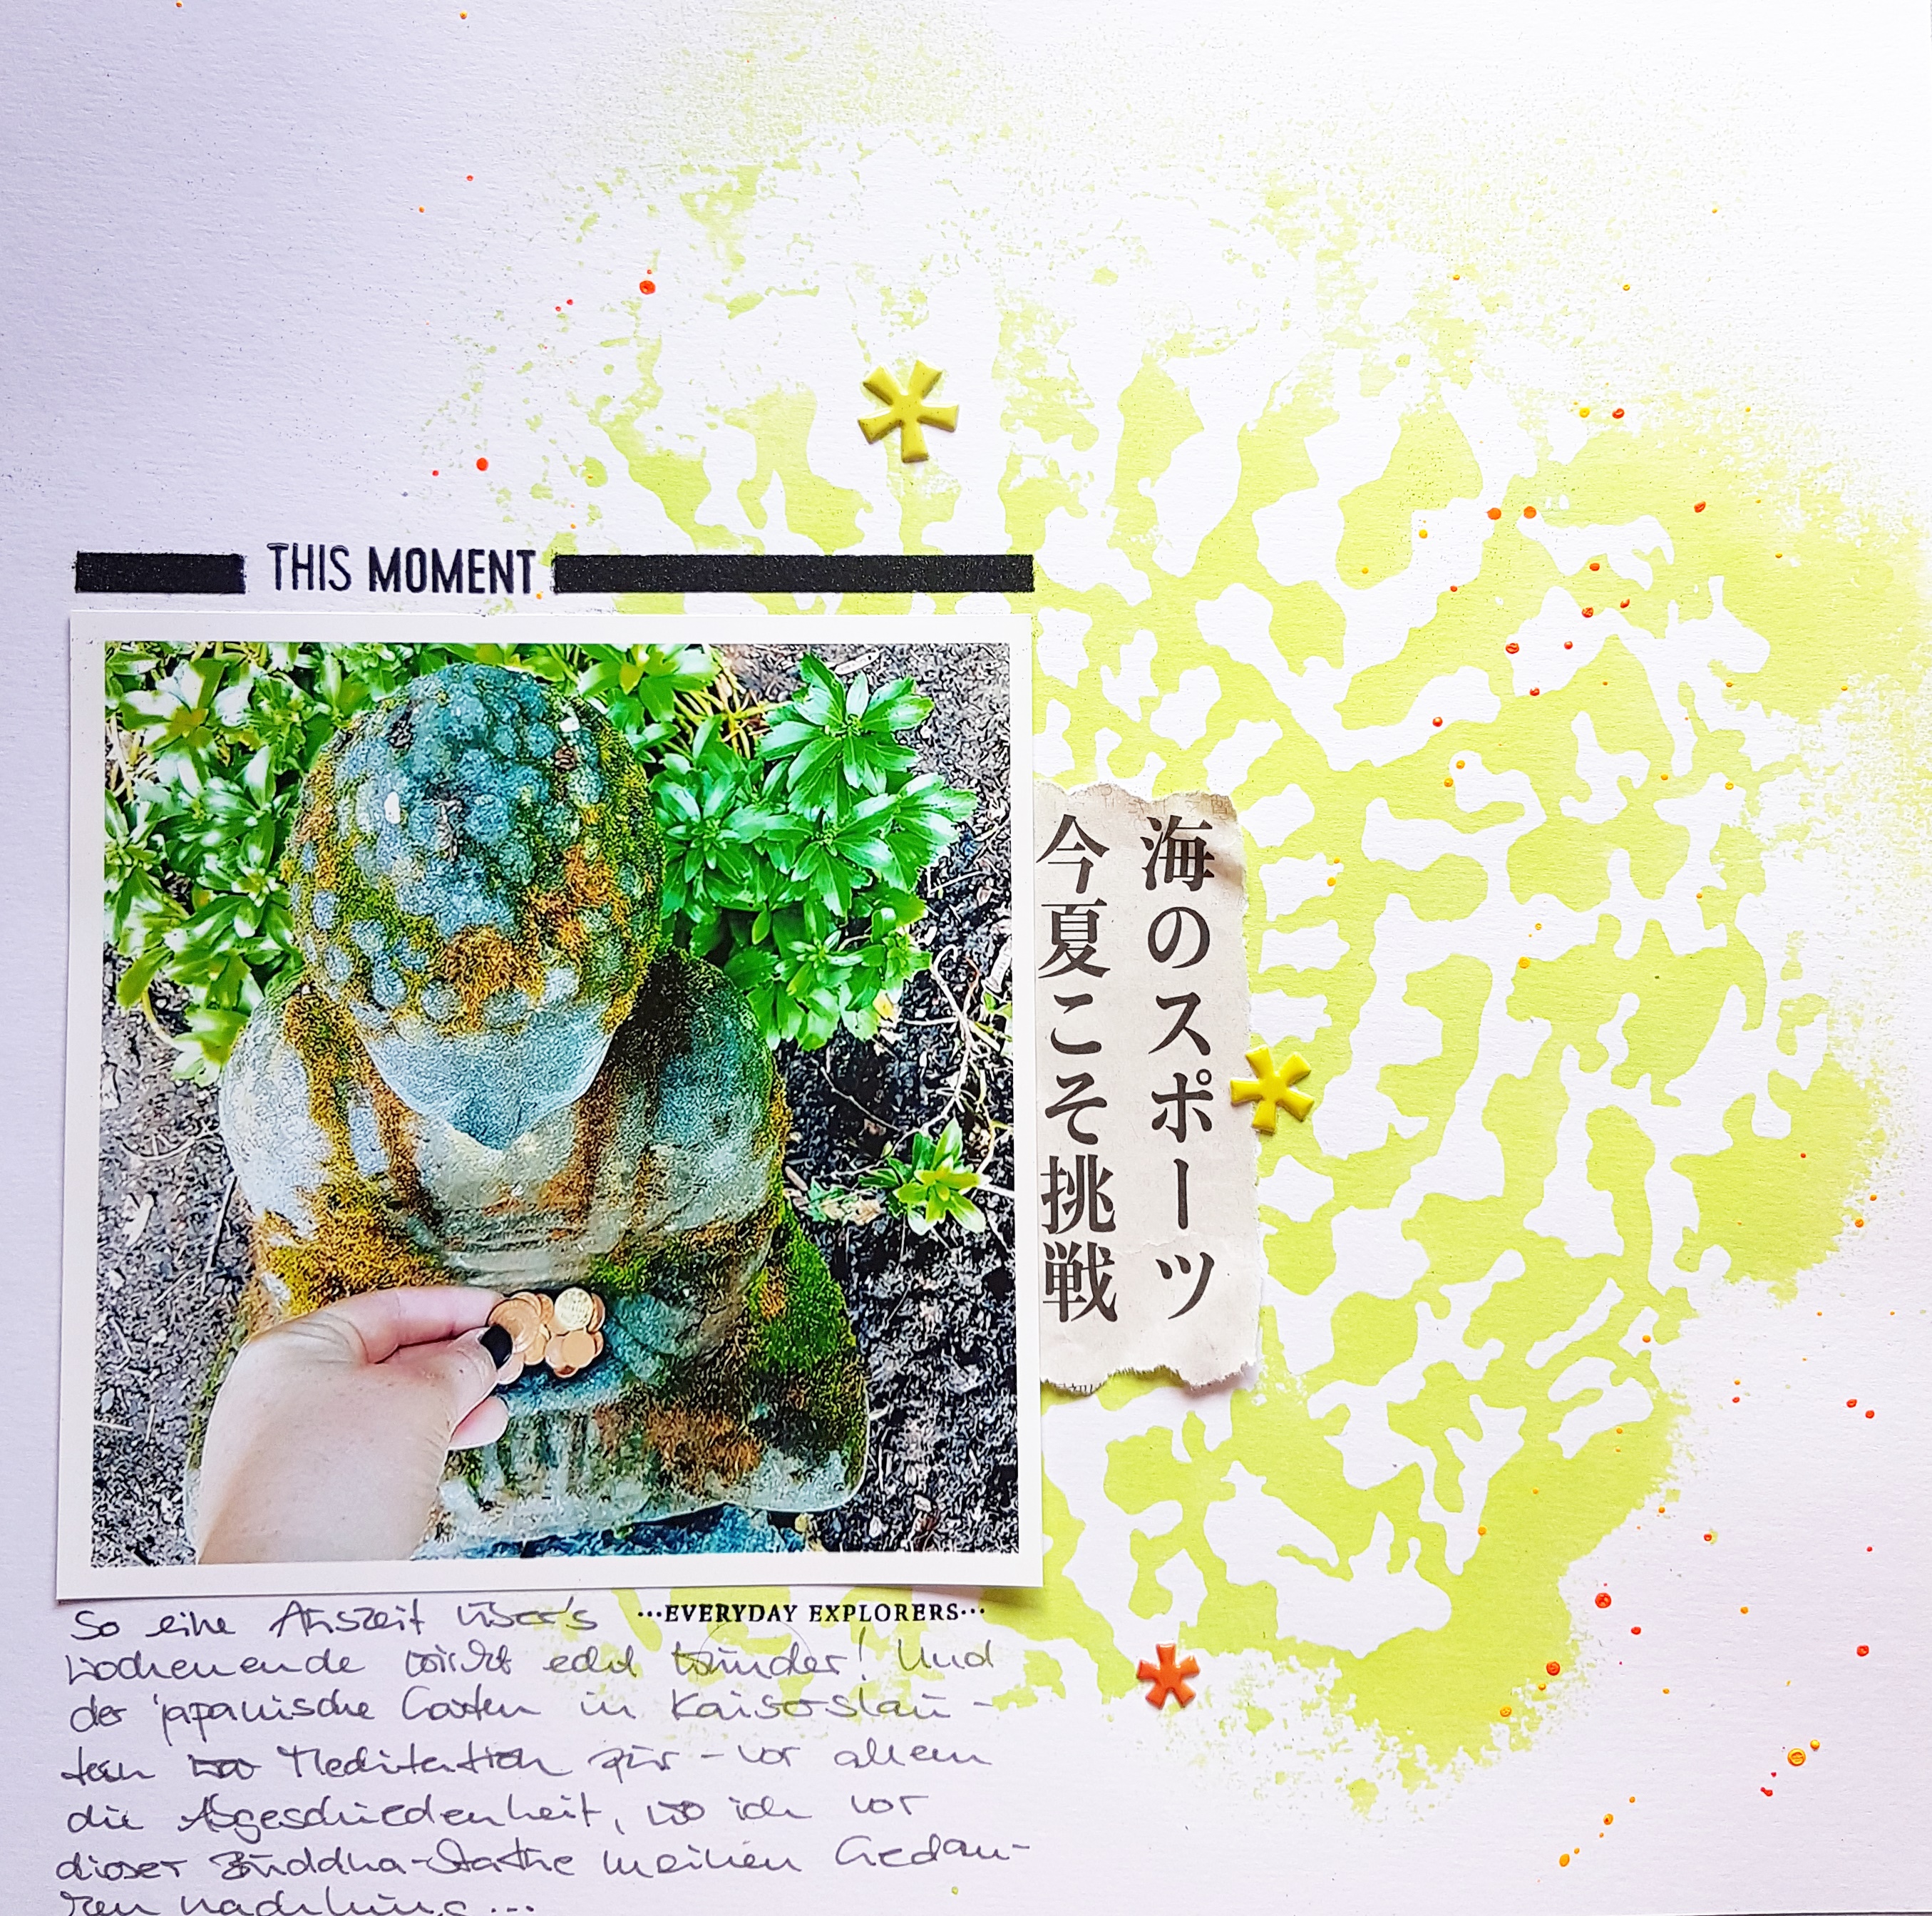 THIS MOMENT
海のスポーツ
今夏こそ挑戦
...EVERYDAY EXPLORERS...
So eine Auszeit über's
Wochenende wirkt echt Wunder! Und
der japanische Garten in Kaiserslau-
tern Meditation pur - vor allem
die Abgeschiedenheit, wo ich vor
dieser Buddha-Statue meinen Gedan-
ken nachhing...